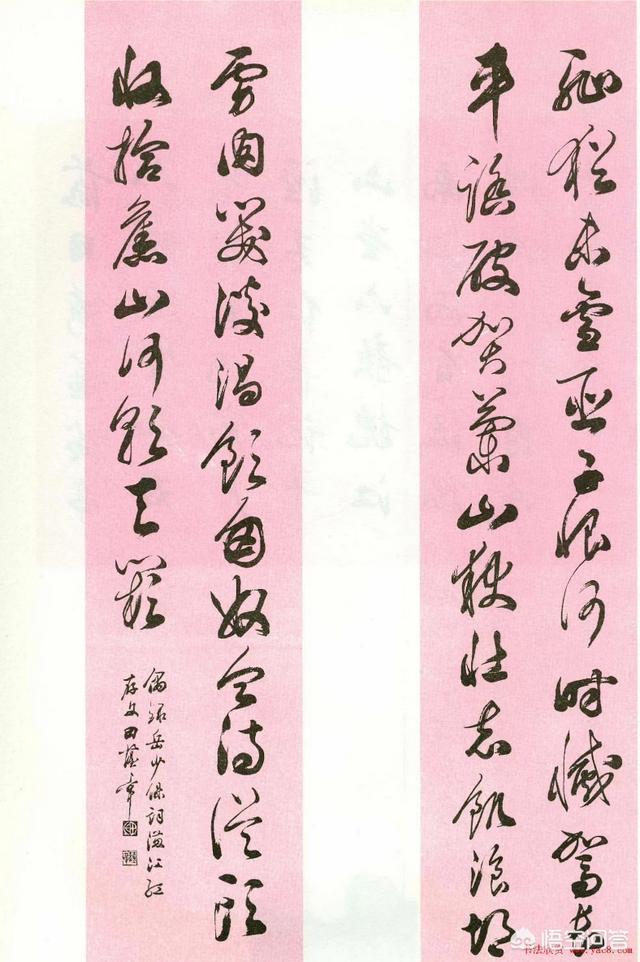 耻猶未雪臣子恨何時滅駕長
車踏破賀蘭山缺壯志飢湌胡
虜肉笑談渴飲匈奴血待從頭
收拾舊山河朝天闕
偶録岳少保詞滿江紅
存文田蘊章
悟空问答
书法欣赏 www.yac8.com